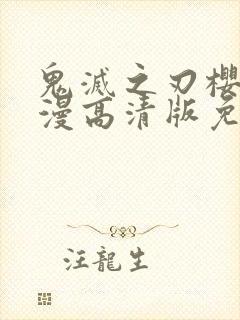 鬼滅之刃櫻
漫高清版免
汪龍生